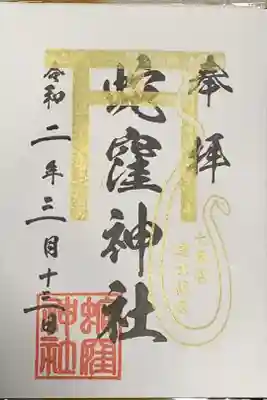 奉拝
蛇窪神社
令和二年三月十三日
蛇窪
神社